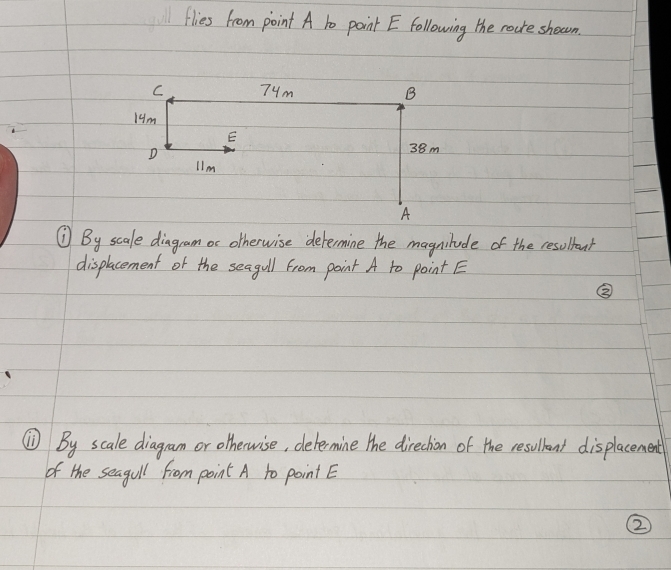 flies from point A to point E following the route shown.
C 74m B
14m
E
D 38m
11m
A
(i) By scale diagram or otherwise determine the magnitude of the resultant
displacement of the seagull from point A to point E
(2)
(ii) By scale diagram or otherwise, determine the direction of the resultant displacement
of the seagull from point A to point E
(2)